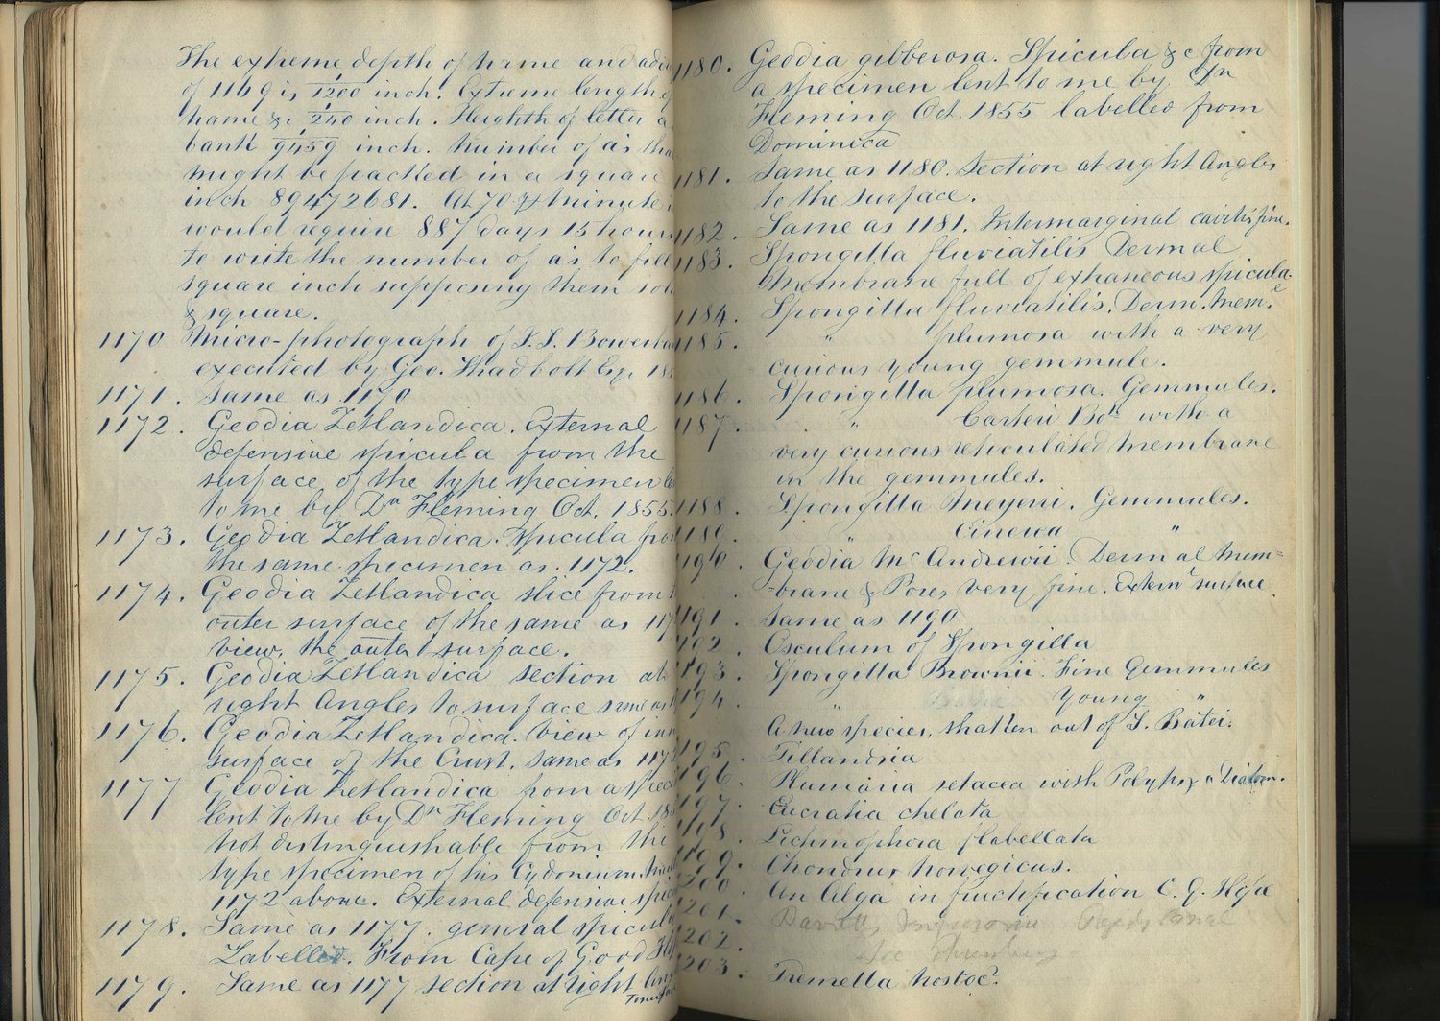 The extreme depth of name and
of 1169 is 1/1200 inch. Extreme length of
name &c 1/240 inch. Heighth of letter a
bank 1/9459 inch. Number of a's that
might be packed in a square
inch 89472681. At 70 pr minute
would require 887 days 15 hours
to write the number of a's to fill
square inch supposing them
& square.
1170 Micro-photograph of J. S.
executed by Geo. Shadbolt Esq.
1171. Same as 1170
1172. Geodia Zetlandica. External
defensive spicula from the
surface of the type specimen
to me by Dr Fleming Oct. 1855
1173. Geodia Zetlandica. Spicula
the same specimen as. 1172.
1174. Geodia Zetlandica slice from
outer surface of the same as
view, the outer surface.
1175. Geodia Zetlandica section at
right Angles to surface same as
1176. Geodia Zetlandica. View of
surface of the Crust. same as
1177 Geodia Zetlandica from a
lent to me by Dr Fleming Oct
not distinguishable from the
type specimen of his Cydonium
1172 above. External defensive
1178. Same as 1177. general
Labelled. From Cape of Good
1179. Same as 1177 section at right
1180. Geodia gibberosa. Spicula &c from
a specimen lent to me by Dr
Fleming Oct 1855 labelled from
Dominica
1181. Same as 1180. Section at right Angles
to the surface.
1182. Same as 1181. Intermarginal cavities fine.
1183. Spongilla fluviatilis Dermal
Membrane full of extraneous spicula.
1184. Spongilla fluviatilis. Derm. Mem.e
1185. " plumosa with a very
curious young gemmule.
1186. Spongilla plumosa. Gemmules.
1187. " Carteri Bok with a
very curious reticulated membrane
in the gemmules.
1188. Spongilla Meyeni. Gemmules.
1189. " Cinerea "
1190. Geodia McAndrewii. Dermal Mem=
-brane & Pores very fine. Extern surface
1191. Same as 1190
1192. Osculum of Spongilla
1193. Spongilla Brownii. Fine Gemmules
1194. " Young "
A new species. shaken out of S. Batei.
1195. Tillandsia
1196. Plumaria setacea with Polyps & a Diatom.
1197. Eucratia chelata
1198. Lichmophora flabellata
1199. Chondrus Norvegicus.
1200. An Alga in fructification C. G. Hope
1201.
1202.
1203. Tremella nostoc?